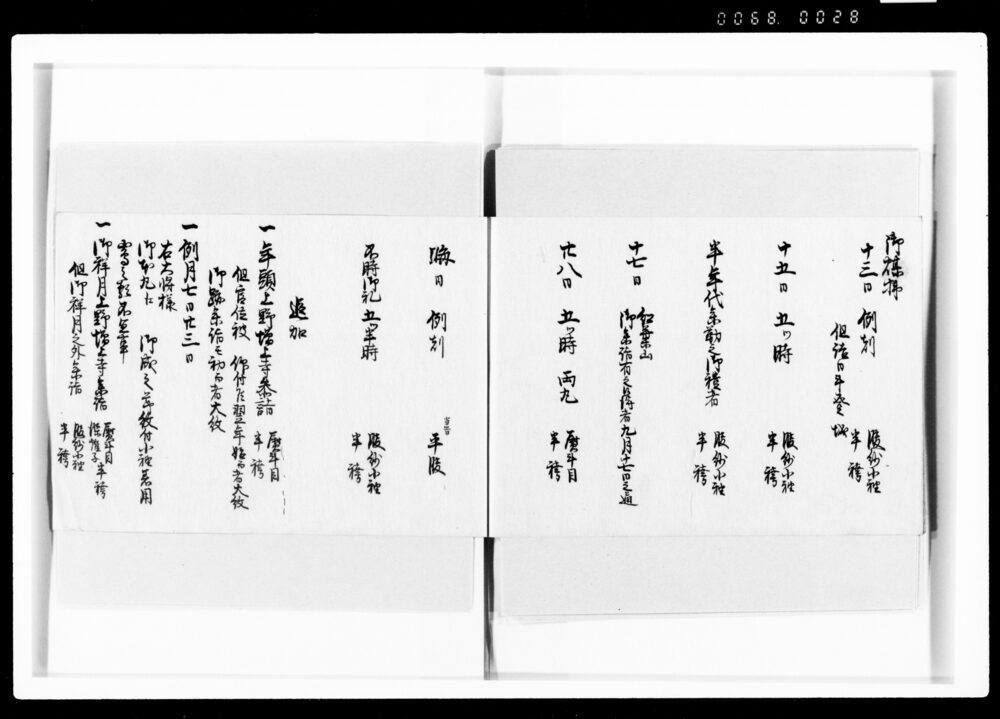 0068. 0028
御祥掃
十三日 例刻
服紗小袖
半袴
但詰日斗登城
十五日 五ツ時
服紗小袖
半袴
半年代参勤之御禮者
服紗小袖
半袴
十七日
紅葉山
御参詣有之候得者九月十七日之通
廿八日 五ツ時 両九
熨斗目
半袴
晦日 例刻
平服
不時御礼 五半時
服紗小袖
半袴
追加
一年頭上野増上寺参詣
熨斗目
半袴
但官位被 仰付候翌年始而者大紋
御跡参詣も初而者大紋
一例月七日廿三日
右大将様
御本丸江 御成之節紋付小袖着用
一御祥月上野増上寺参詣
熨斗目
半袴
但御祥月之外参詣
服紗小袖
半袴